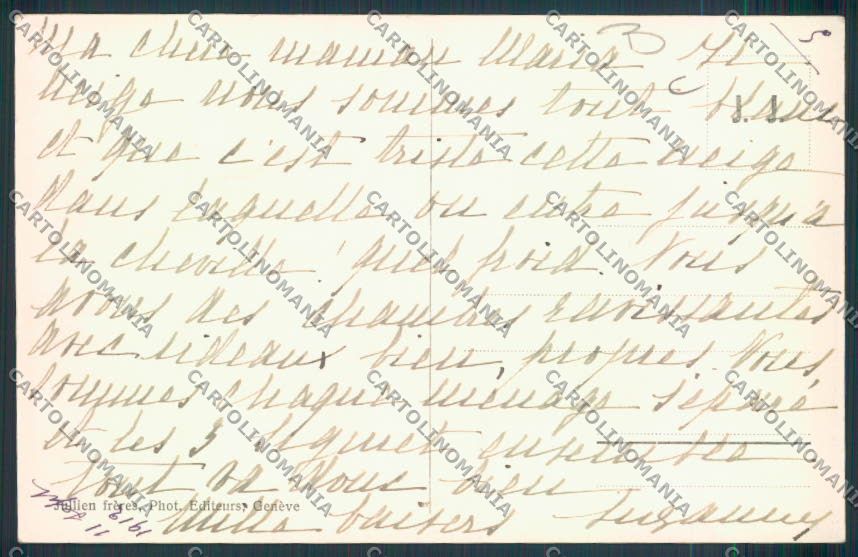 Ma chère maman Maria Il
neige nous sommes tout
et que c'est triste cette neige
dans laquelle on entre jusqu'à
la cheville! quel froid. Nous
avons des chambres ravissantes
avec rideaux bien propres. Nous
sommes chaque ménage séparé
et les 3 ensemble
tout va donc bien
Mille baisers Suzanne
Jullien frères, Phot. Editeurs, Genève
J. J.
5
1919
11
CARTOLINOMANIA